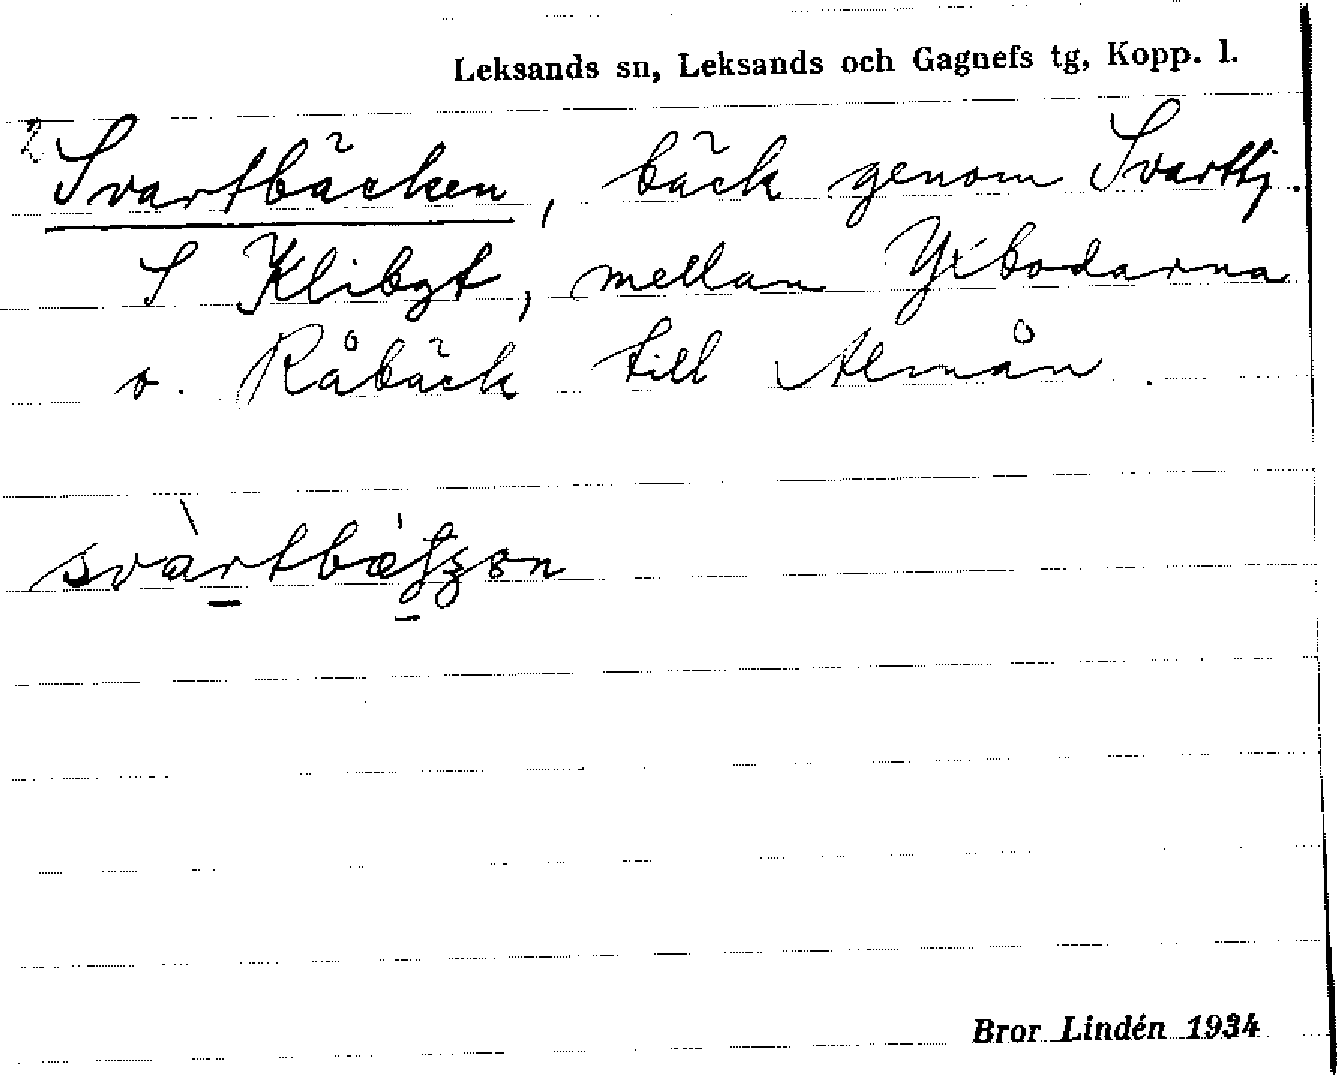 Leksands sn, Leksands och Gagnefs tg, Kopp. l.
2 Svartbäcken, bäck genom Svarttj.
S Klibgt, mellan Yxbodarna
o. Råbäck till Almån.
Bror Lindén 1934